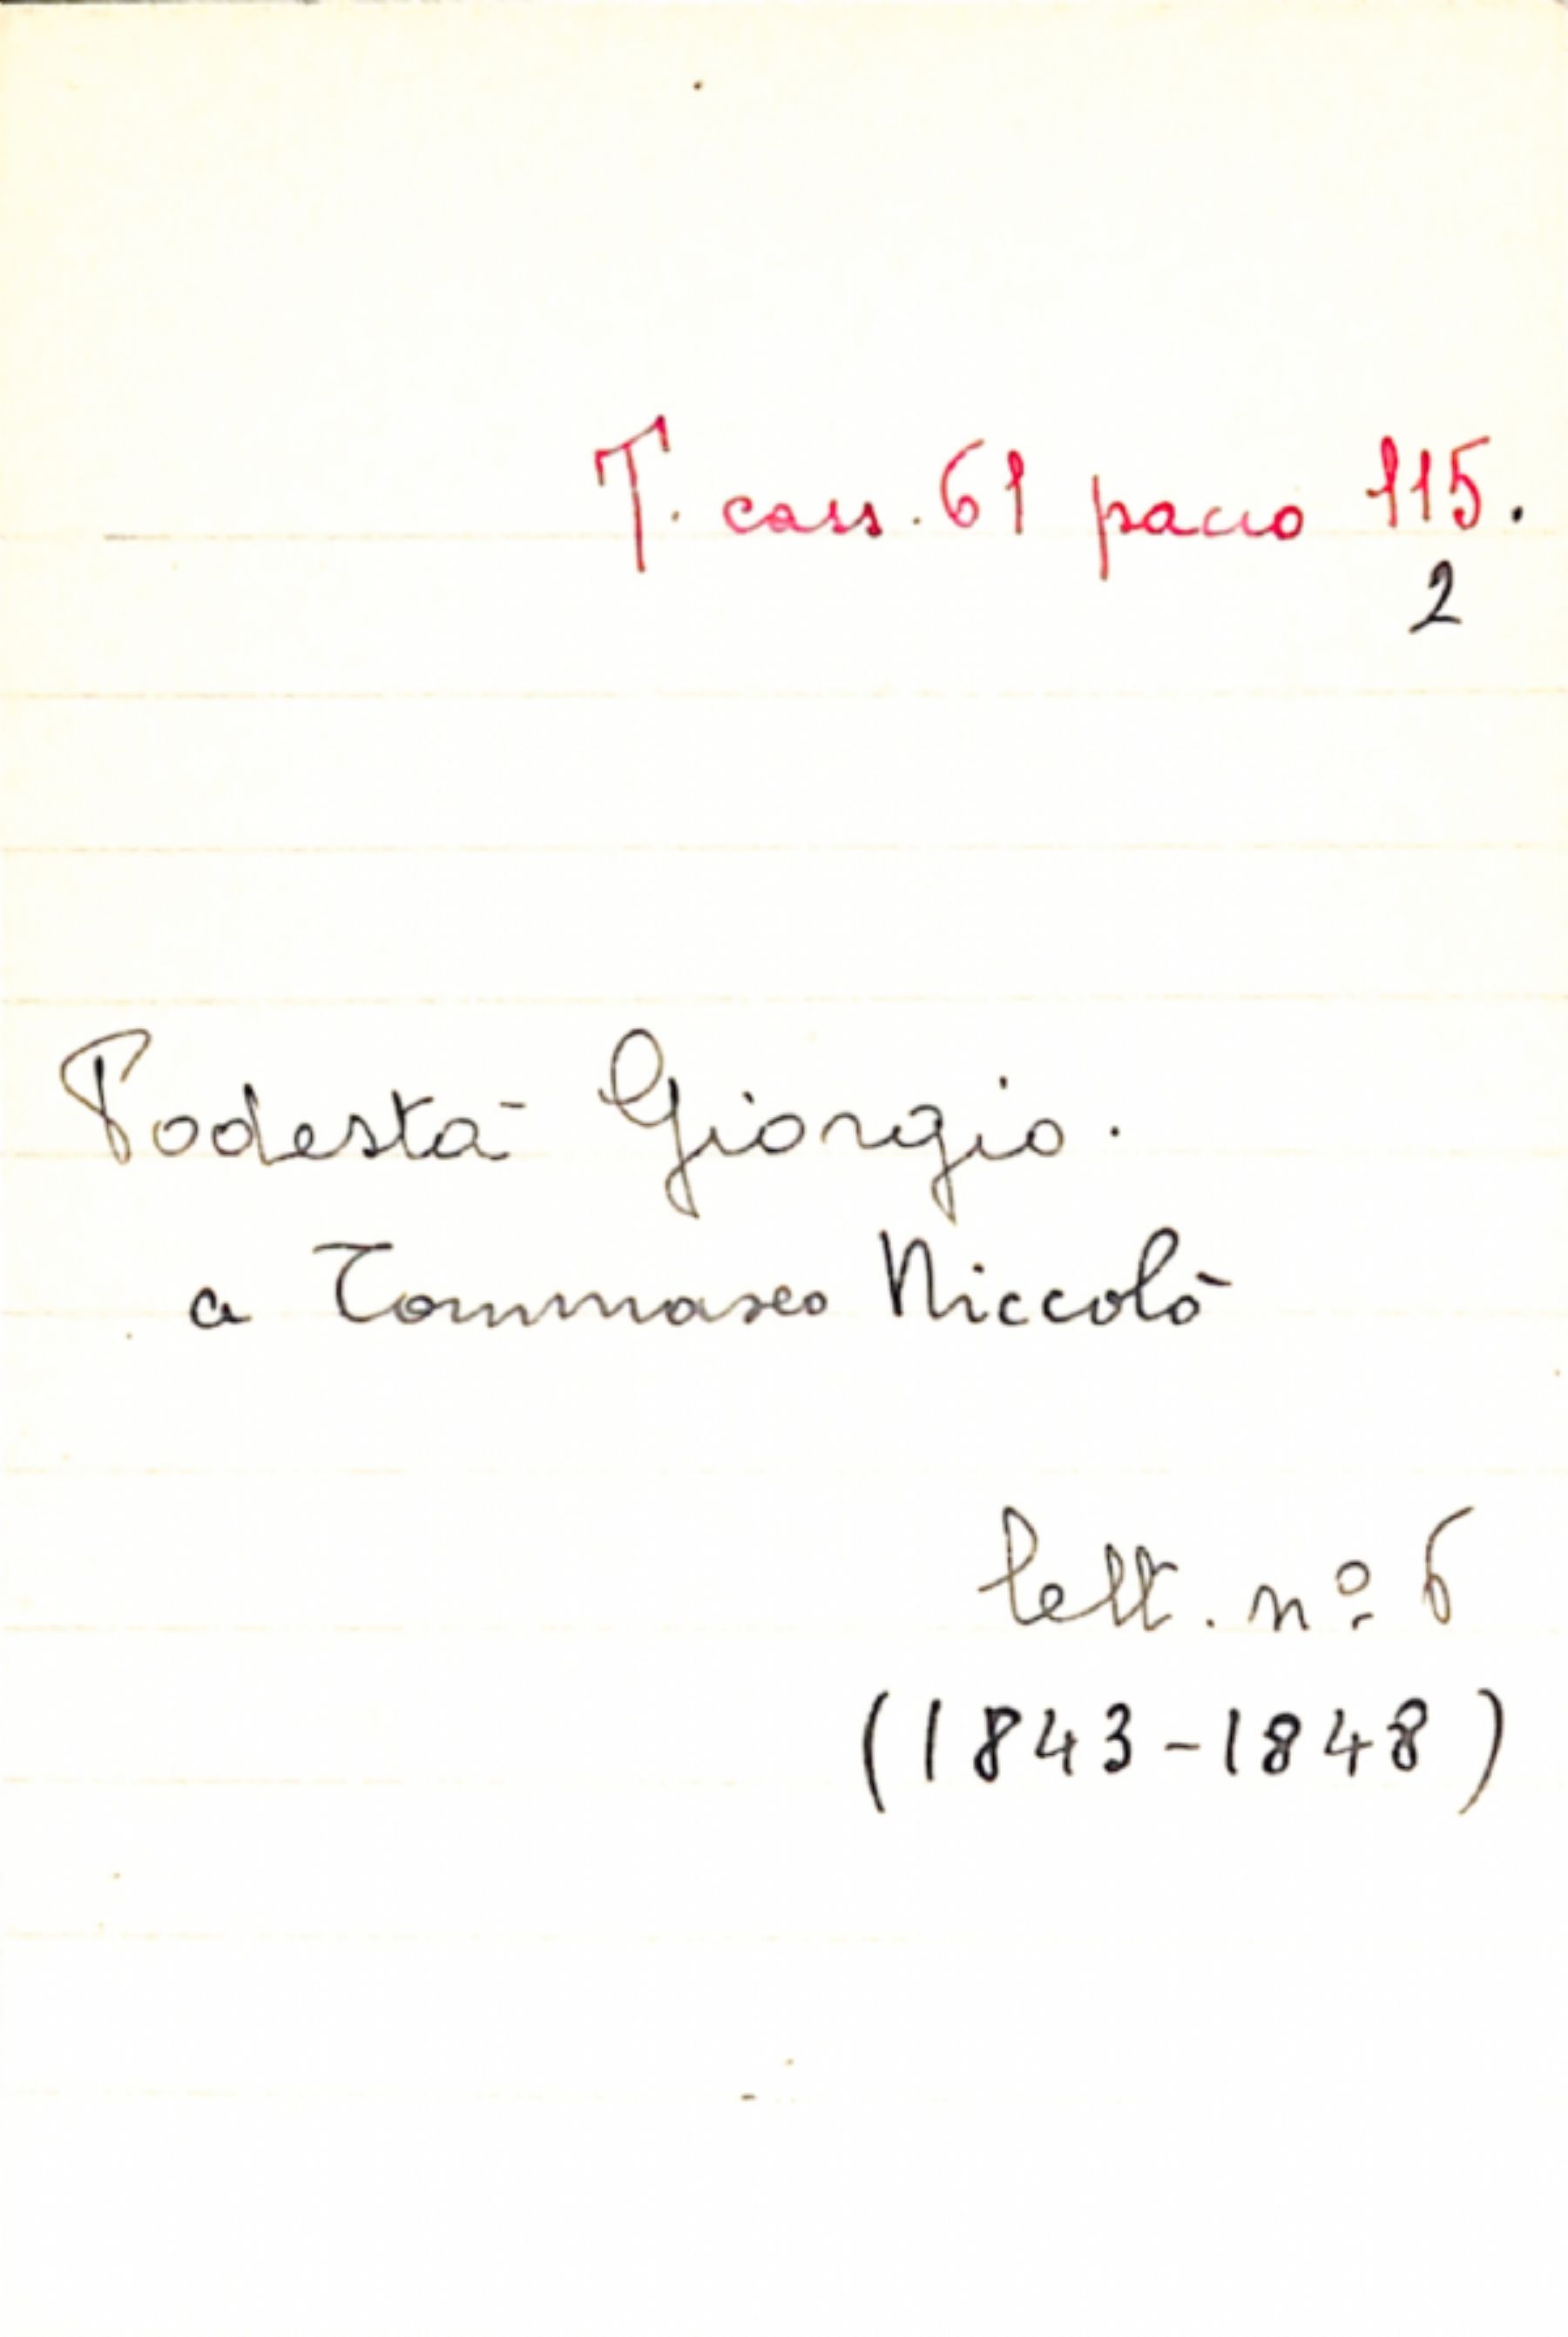 T. cass. 61 pacco 115.
2
Podestà Giorgio.
a Tommaseo Niccolò
lett. nº 6
(1843-1848)